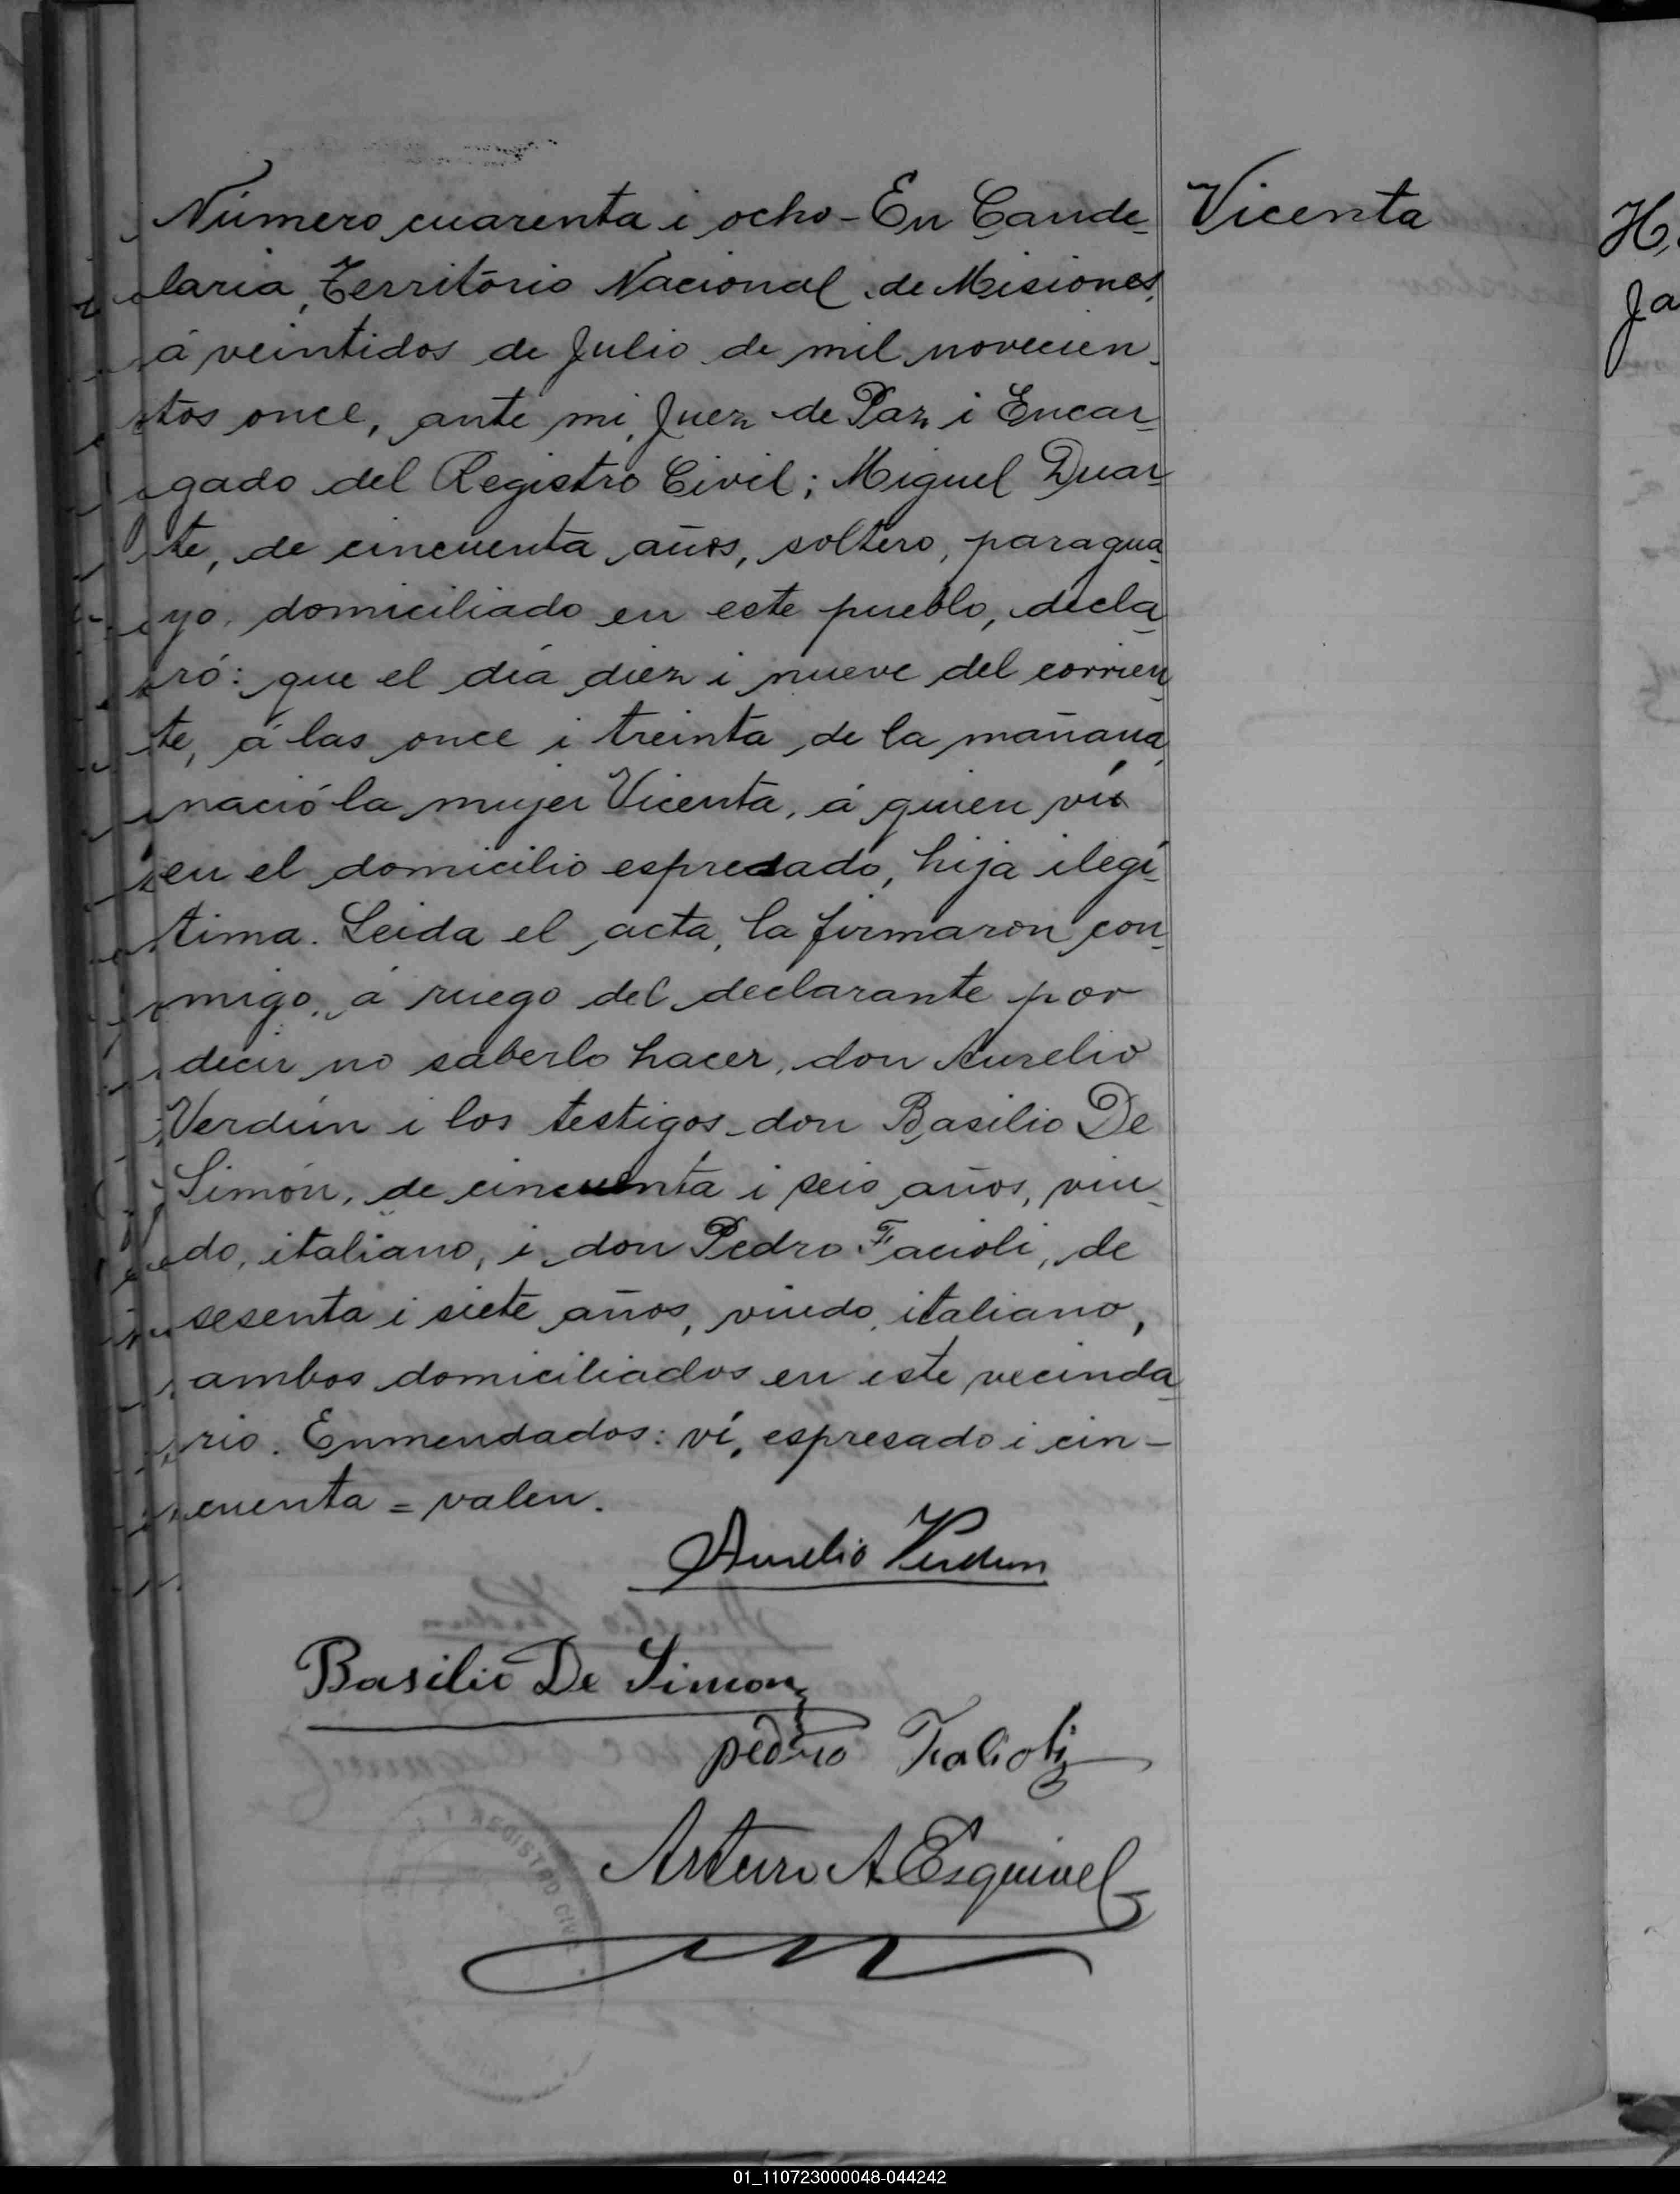 Número cuarenta i ocho - En Cande-
laria, Territorio Nacional de Misiones,
á veintidos de Julio de mil novecien-
tos once, ante mi, Juez de Paz i Encar-
gado del Registro Civil; Miguel Duar-
te, de cincuenta años, soltero, paragua-
yo, domiciliado en este pueblo, decla-
ró: que el día diez i nueve del corrien-
te, á las once i treinta de la mañana,
nació la mujer Vicenta, á quien ví
en el domicilio espresado, hija ilegí-
tima. Leida el acta, la firmaron con-
migo, á ruego del declarante por
decir no saberlo hacer, don Aurelio
Verdún i los testigos don Basilio De
Simón, de cincuenta i seis años, viu-
do, italiano, i don Pedro Facioli, de
sesenta i siete años, viudo, italiano,
ambos domiciliados en este vecinda-
rio. Enmendados: ví, espresado i cin-
cuenta = valen.
Vicenta
Aurelio Verdun
Basilio De Simon
pedro Facioli
Arturo A Esquivel
REGISTRO CIVIL
H.
Ja
01_110723000048-044242